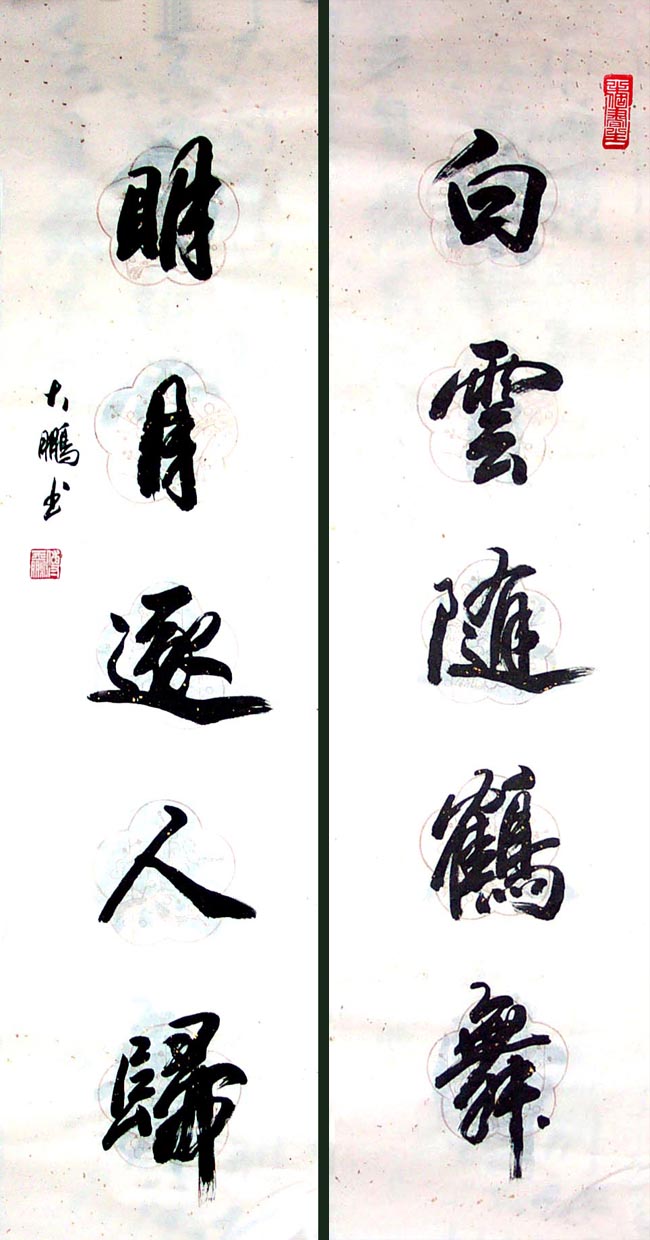 白雲随鶴舞
明月逐人歸
大鵬书